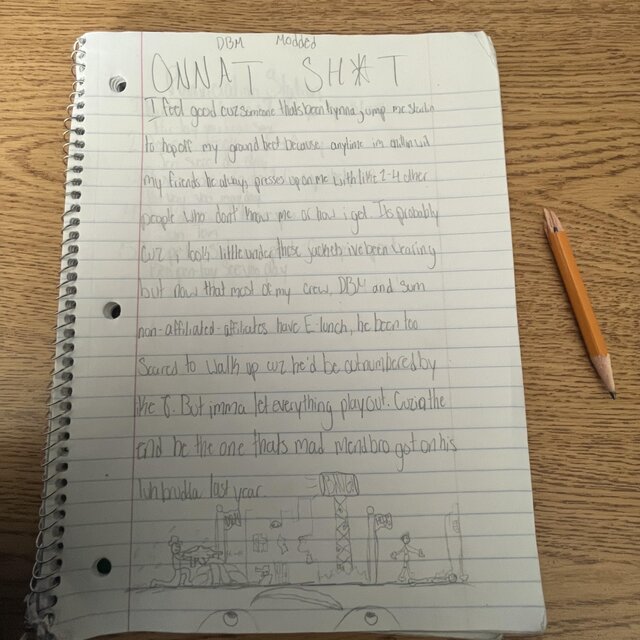 DBM Modded
ONNAT SH*T
I feel good cuz someone thats been trynna jump me
to hop off my ground beef because anytime im
my friends he always presses up on me with like 2-4 other
people who don't know me or how i get. Its probably
cuz look little under these jackets ive been wearing
but now that most of my crew, DBM and sum
non-affiliated-affiliates have E-lunch, he been too
Scared to walk up cuz he'd be outnumbered by
like 8. But imma let everything play out. Cuz in the
end be the one thats mad me bro got on his
luh brudda last year.
DBM